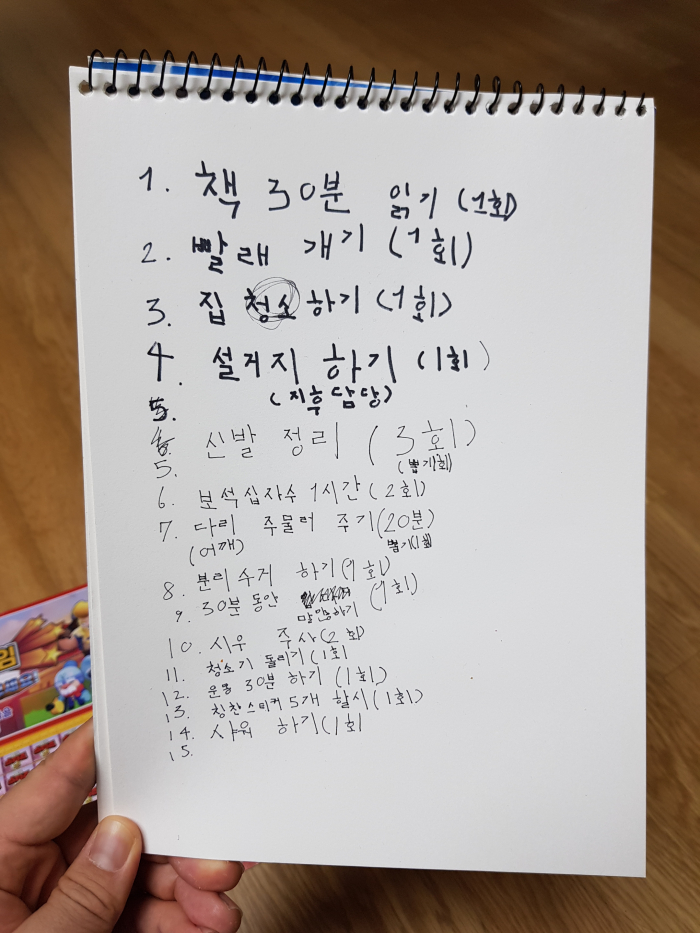 1. 책 30분 읽기 (1회)
2. 빨래 개기 (1회)
3. 집 청소 하기 (1회)
4. 설거지 하기 (1회)
(지후 담당)
5. 신발 정리 (3회)
(뽑기1회)
6. 보석십자수 1시간 (2회)
7. 다리 주물러 주기(20분)
(어깨) 뽑기(1회)
8. 분리수거 하기(1회)
9. 30분 동안 말안하기 (1회)
10. 시우 주사(2회)
11. 청소기 돌리기(1회
12. 운동 30분 하기 (1회)
13. 칭찬스티커 5개 할시(1회)
14. 샤워 하기(1회
15.
임